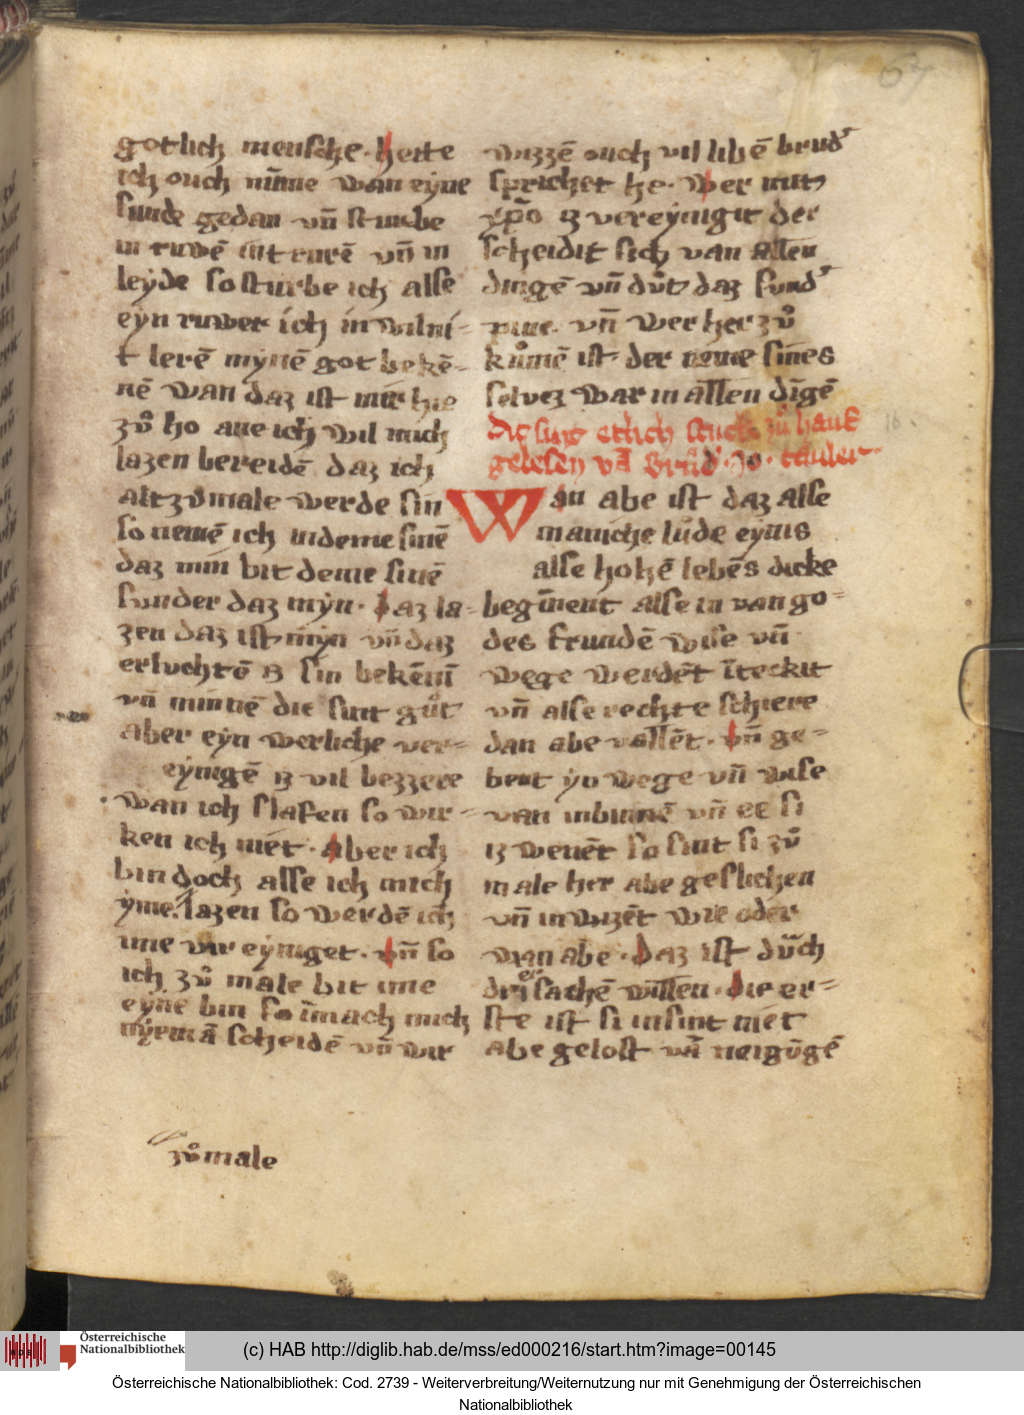 gotlich mensche. hette
ich ouch nu̅me wan eyne
sunde gedan vn̅ sturbe
in ruwe̅ vn̅ in
leyde so sturbe ich alse
eyn ruwer ich in wilni-
t lere̅ myne̅ got beke̅-
ne̅ wan daz ist mir hie
zuͦ ho aue ich wil mich
lazen bereide̅ daz ich
altzuͦmale werde sin
so neme̅ ich indeme sine̅
daz min bit deme sine̅
sunder daz myn. daz la-
zen daz ist myn vn̅ daz
erluchte̅ iz sin beken̅i̅
vn̅ minne̅ die sint guͦt
aber eyn werliche ver-
eynige̅ iz vil bezzere
wan ich slafen so wir-
ken ich niet. aber ich
bin doch alse ich mich
yme lazen so werde̅ ich
ime vir eyniget. vn̅ so
ich zuͦ male bit ime
eyne bin so mach mich
nyema̅ scheide̅ vn̅ wir
zuͦmale
67
wizze̅ ouch vil libe̅ brud'
sprichet he. wer mit
xp̅o iz vereynigit der
scheidit sich van allen
dinge̅ vn̅ daz sund'
pine. vn̅ wer her zuͦ
kuͦme̅ ist der neme sines
selvez war in allen di̅ge̅
Diz sint etlich stuck zuͦ hauf
gelesen va̅ Brud' Jo. tauler
16.
Wan abe ist daz alse
maniche lude eynis
alse hohe̅ lebe̅s dicke
begi̅nent alse in van go-
des frunde̅ wise vn̅
wege werde̅t i̅teckit
vn̅ alse rechte schiere
dan abe valle̅t. vn̅ ge-
bent yn wege vn̅ wise
van inbinne̅ vn̅ ee si
iz wene̅t so sint si zuͦ
male her abe geslichen
vn̅ inwize̅t wie oder
wan abe. Daz ist durch
drier sache̅ willen. die er-
ste ist si insint niet
abe gelost va̅ neiguge̅
(c) HAB http://diglib.hab.de/mss/ed000216/start.htm?image=00145
Österreichische
Nationalbibliothek
Österreichische Nationalbibliothek: Cod. 2739 - Weiterverbreitung/Weiternutzung nur mit Genehmigung der Österreichischen
Nationalbibliothek